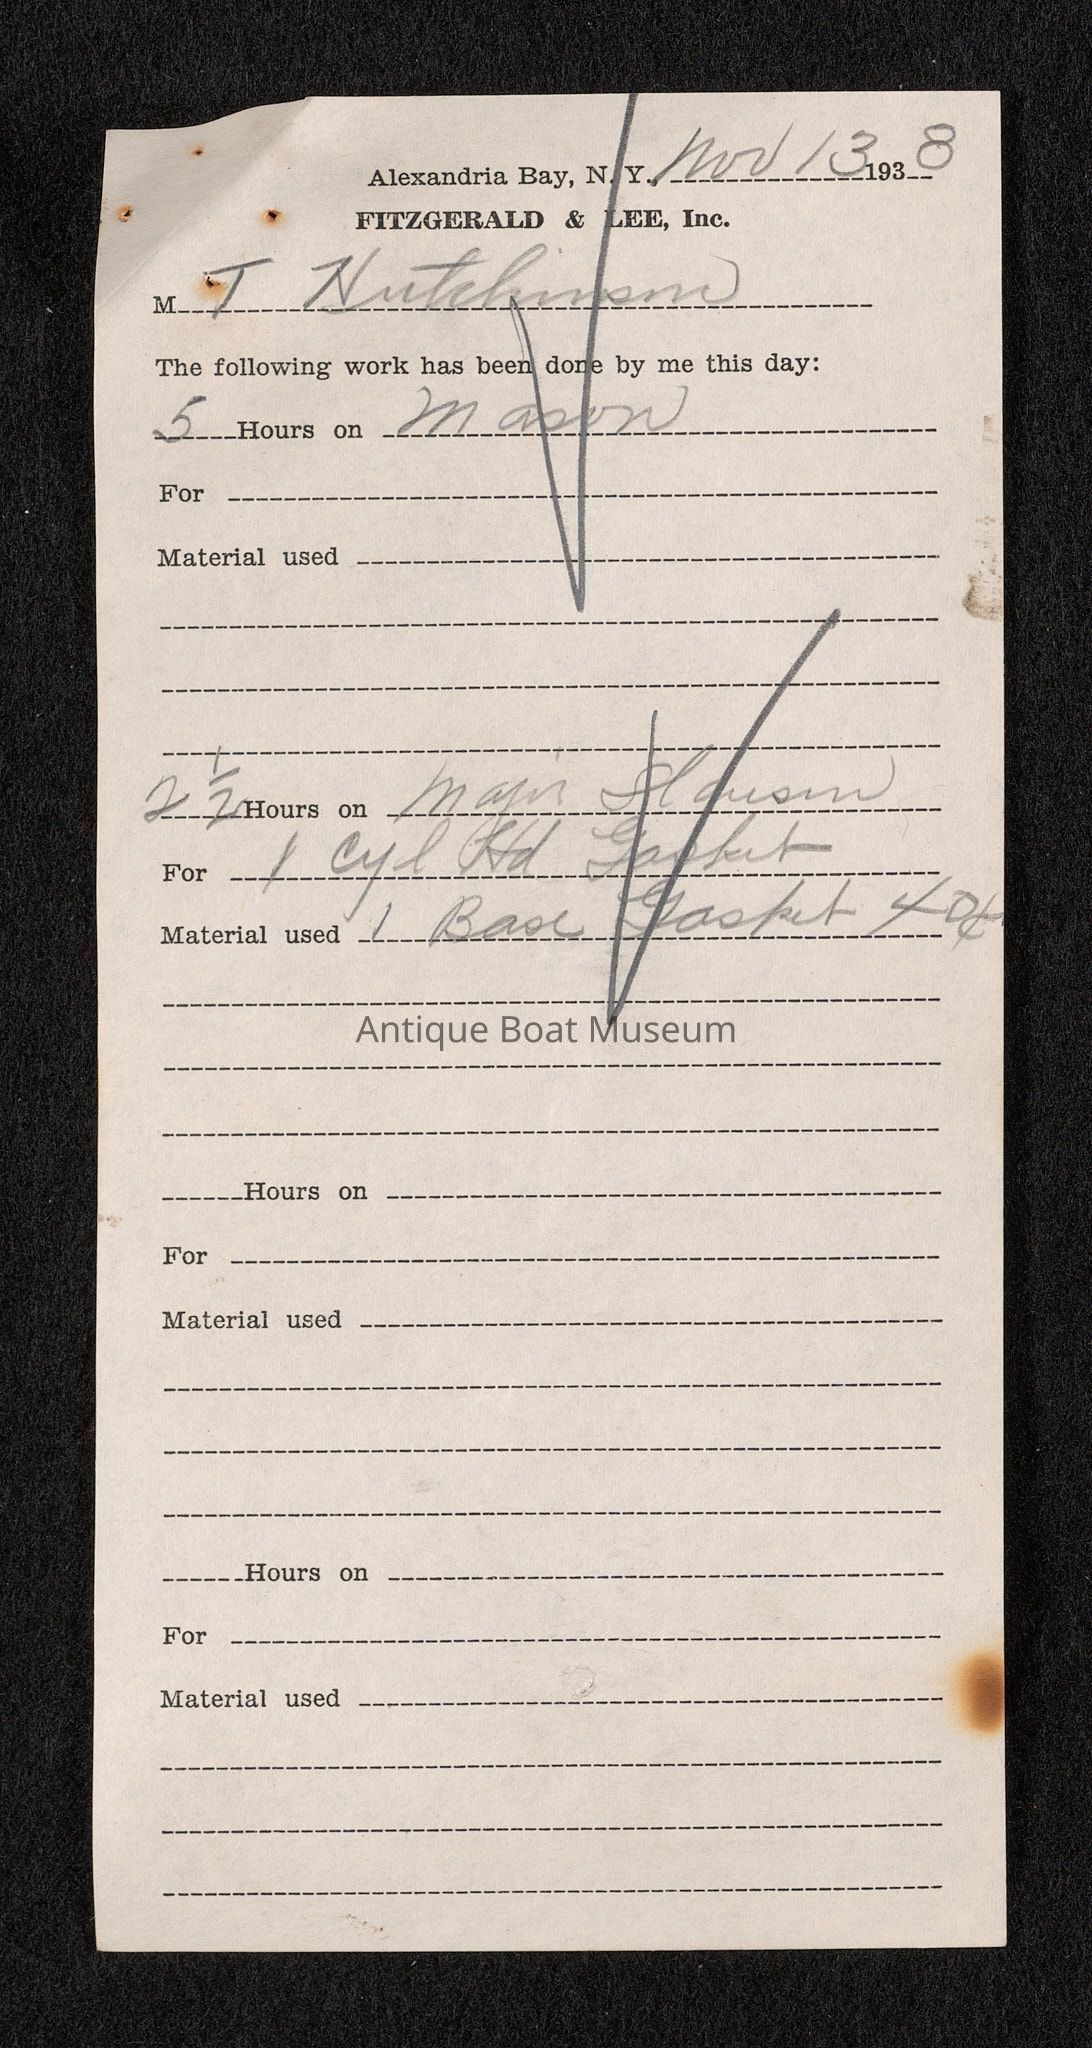 Alexandria Bay, N. Y., Nov 13 1938
FITZGERALD & LEE, Inc.
M T Hutchinson
The following work has been done by me this day:
5 Hours on Mason
For
Material used
2 1/2 Hours on Major
For 1 Cyl Hd Gasket
Material used 1 Base Gasket 40¢
Antique Boat Museum
Hours on
For
Material used
Hours on
For
Material used